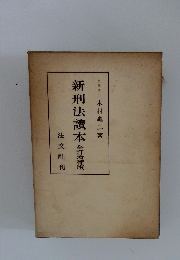 木村龜二著
新刑法讀本
全訂新版
法文社刊